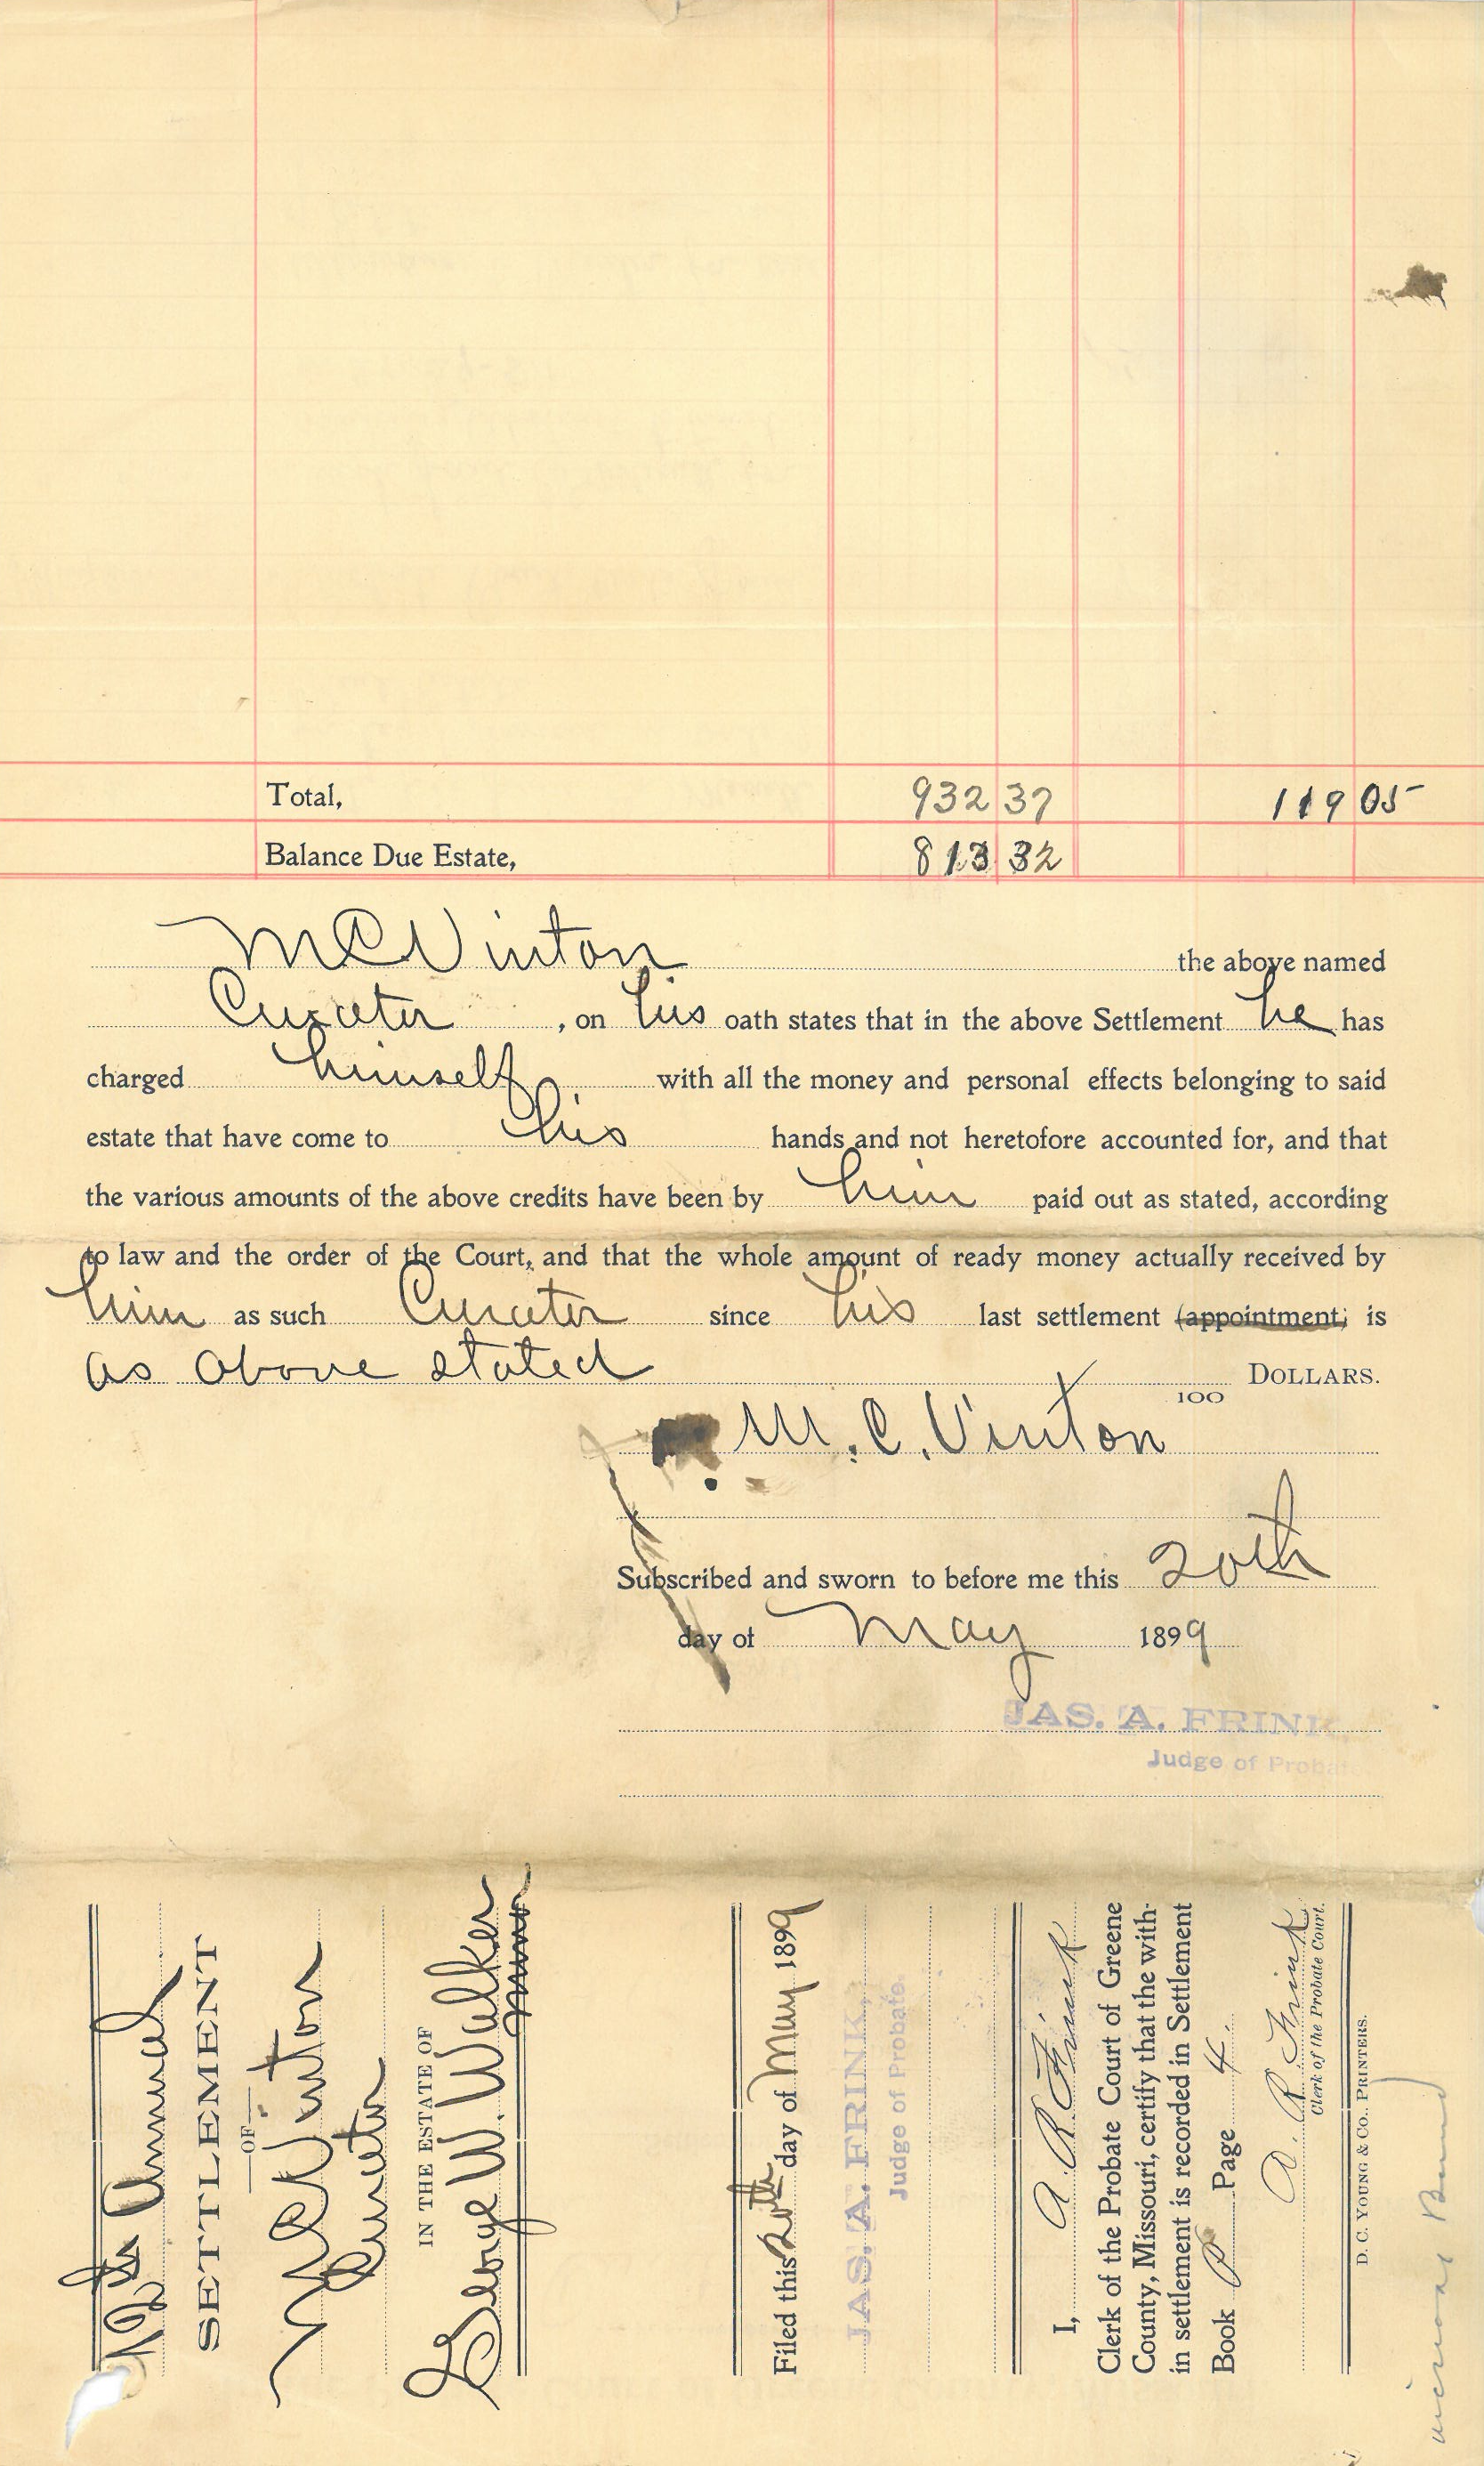 Total, 932 37 119 05
Balance Due Estate, 813 32
M C Vinton the above named
Curator , on his oath states that in the above Settlement he has
charged himself with all the money and personal effects belonging to said
estate that have come to his hands and not heretofore accounted for, and that
the various amounts of the above credits have been by him paid out as stated, according
to law and the order of the Court, and that the whole amount of ready money actually received by
him as such Curator since his last settlement (appointment) is
as above stated 100 DOLLARS.
M. C. Vinton
Subscribed and sworn to before me this 20th
day of May 1899
JAS. A. FRINK
Judge of Probate
Annual
SETTLEMENT
—OF—
M C Vinton
Curator
IN THE ESTATE OF
George W. Walker
minor
Filed this 20th day of May 1899
JAS. A. FRINK,
Judge of Probate.
I, A. R. Frink
Clerk of the Probate Court of Greene
County, Missouri, certify that the with-
in settlement is recorded in Settlement
Book P Page 4.
A. R. Frink
Clerk of the Probate Court.
D. C. YOUNG & CO., PRINTERS.